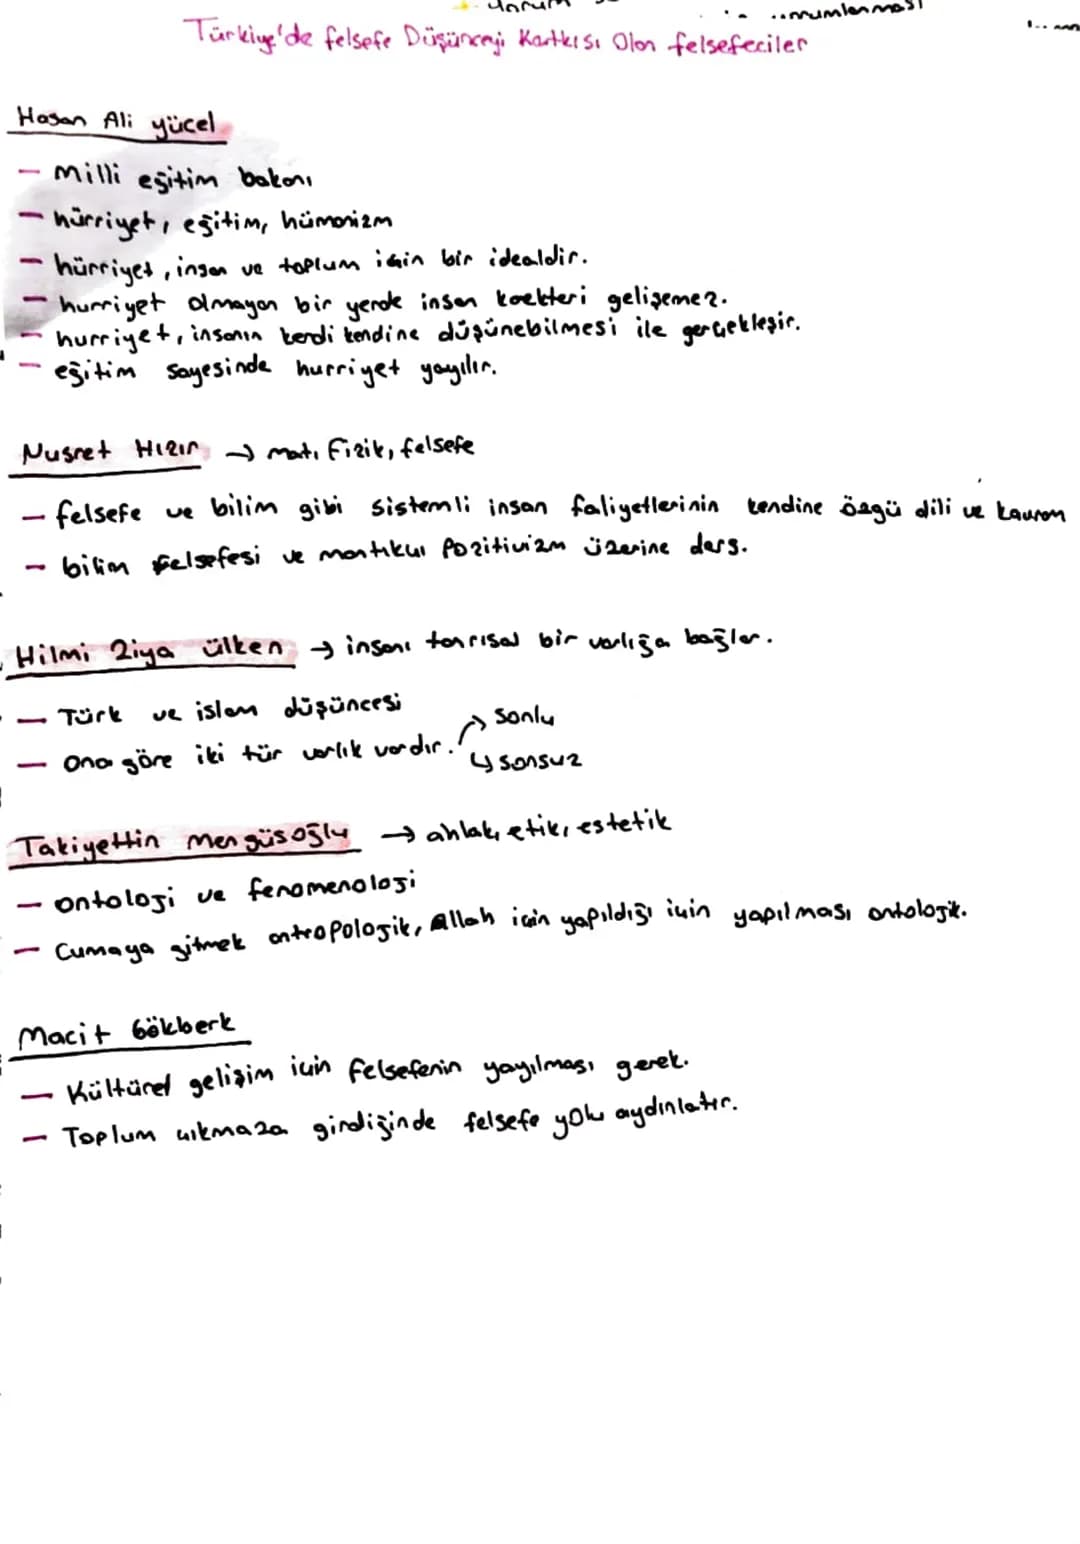 Türkiye'de felsefe Düşünceyi Kartkısı Olan felsefeciler
Hasan Ali yücel
- Milli eğitim bakanı
- hürriyet, eğitim, hümanizm
- hürriyet, insan ve toplum için bir idealdir.
- hurriyet olmayan bir yerde insan koekteri gelişemez.
- hurriyet, insanın kendi kendine düşünebilmesi ile gerçekleşir.
- eğitim sayesinde hurriyet yayılır.
Nusret Hızır → mat, fizik, felsefe
- felsefe ve bilim gibi sistemli insan faliyetlerinin kendine özgü dili ve kavram
- bilim felsefesi ve mantıkçı pozitivizm üzerine ders.
Hilmi Ziya ülken → insanı tanrısal bir varlığa bağlar.
- Türk ve islam düşüncesi
- Ona göre iki tür varlık vardır. → sonlu
↳ sonsuz
Takiyettin mengüşoğlu → ahlak, etik, estetik
- ontoloji ve fenomenoloji
- Cumaya gitmek antropolojik, Allah için yapıldığı için yapılması ontolojik.
Macit Gökberk
- Kültürel gelişim için felsefenin yayılması gerek.
- Toplum çıkmaza girdiğinde felsefe yolu aydınlatır.